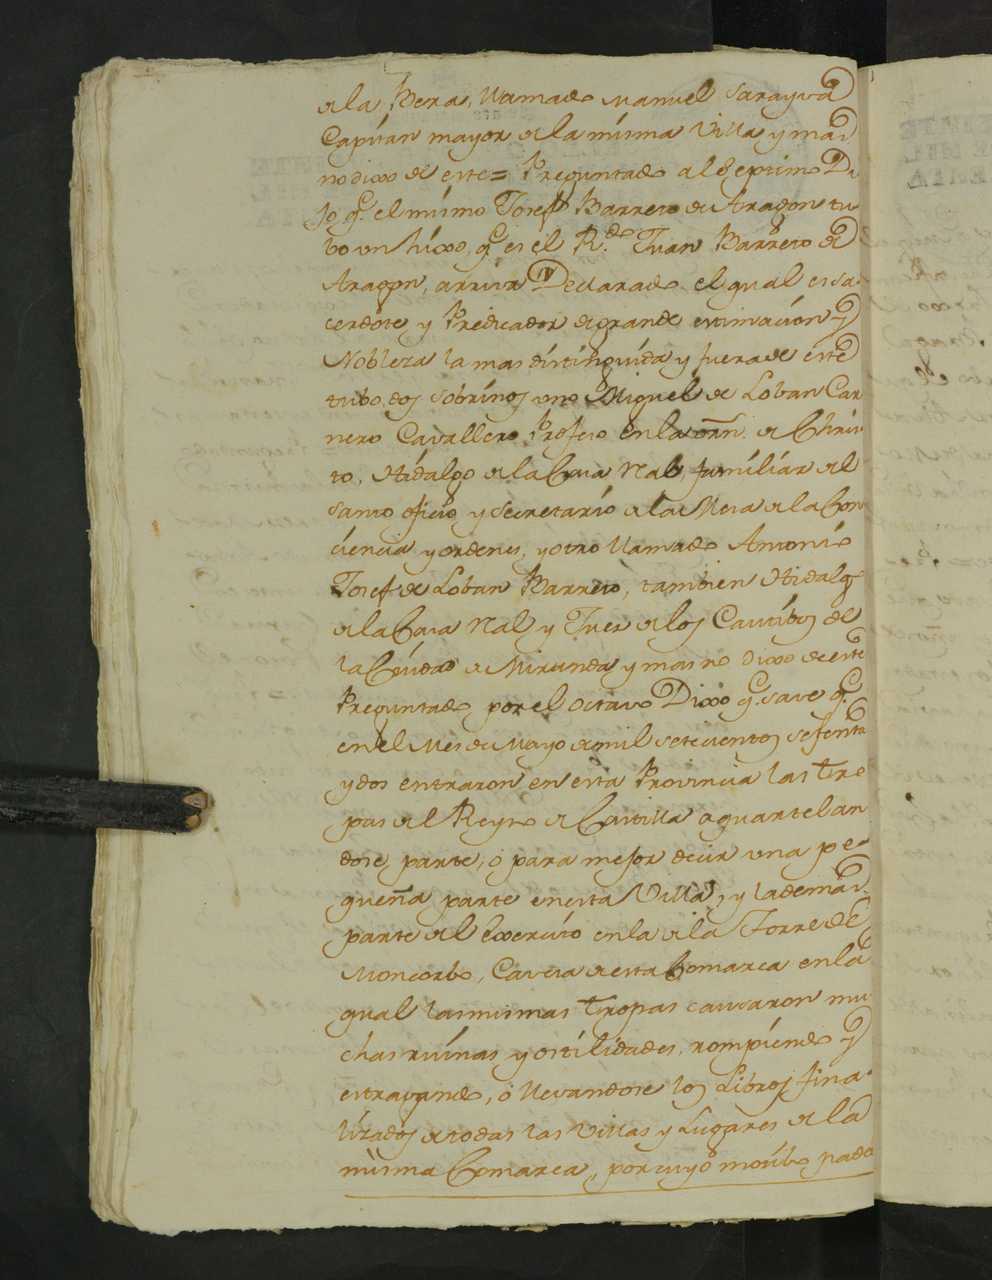 de la Bera, llamado Manuel Sarayva
Capitan mayor de la misma Villa y mas
no dixo de este= Preguntado al Septimo Di
jo q.e el mismo Josef Barreto de Aragon tu
bo un hixo, q.e es el R.do Juan Barreto de
Aragon, arriva Declarado el qual es sa-
cerdote y Predicador de grande estimación y
Nobleza la mas distinguida y fuera de este
tubo dos sobrinos uno Miguel de Loban Car
nero Cavallero Profeso en la orn. de Chris
to, Hidalgo de la Casa Ral, familiar del
santo oficio y secretario de la Mesa de la Con
ciencia y ordenes, y otro llamado Antonio
Josef de Loban Barreto, tambien Hidalgo
de la Casa Ral y Juez de los Cautibos de
la Ciudad de Miranda y mas no dixo de este
Preguntado por el octavo Dixo q.e save q.e
en el Mes de Mayo de mil setecientos sesenta
y dos entraron en esta Provincia las tro
pas del Reyno de Castilla aquartelan
dose parte, o para mejor decir una pe-
queña parte en esta Villa, y la demas
parte del Exercito en la de la Torre de
Moncorbo, Caveza de esta Comarca en la
qual las mismas tropas causaron mu
chas ruinas y ostilidades, rompiendo y
estraviando, o llevandose los Libros fina-
lizados de todas las Villas y Lugares de la
misma Comarca, por cuyo motibo nada